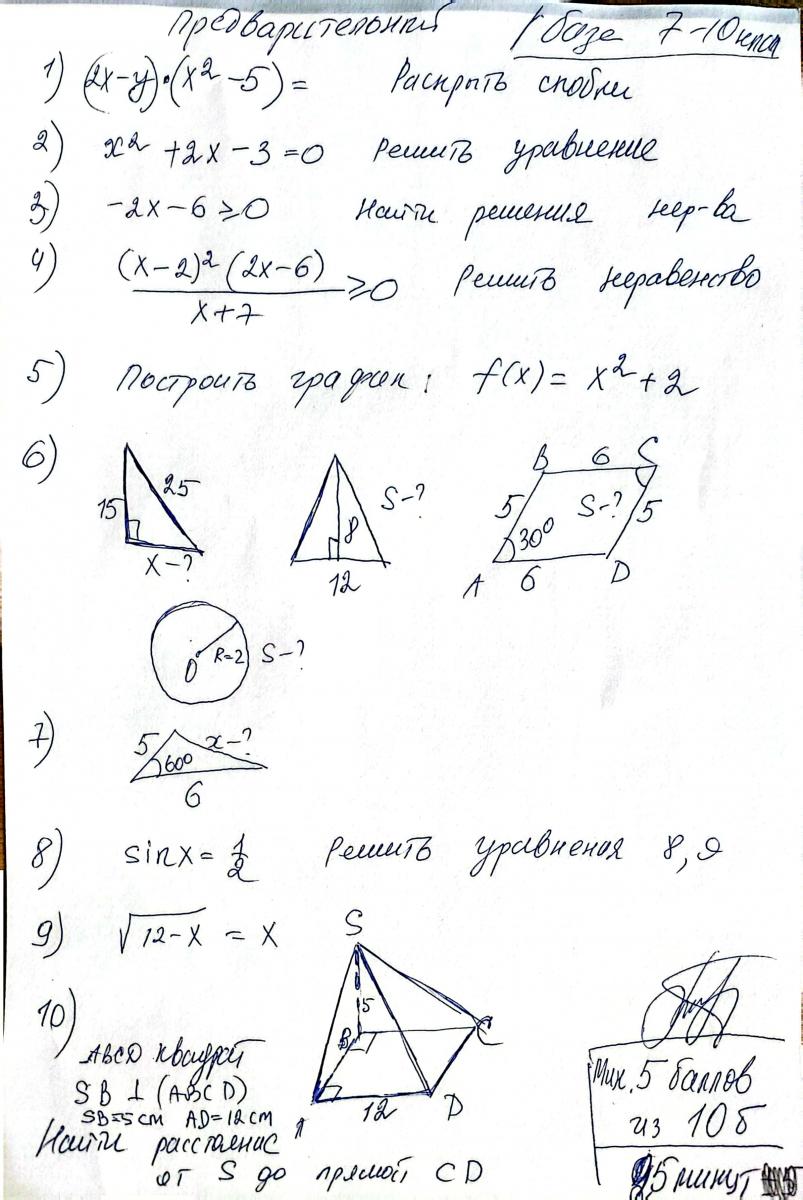 Предварительный
1 базе 7-10 класс
1) (2x-y)·(x²-5)= Раскрыть скобки
2) x²+2x-3=0 Решить уравнение
3) -2x-6≥0 Найти решения нер-ва
4) (x-2)²(2x-6)
x+7
≥0 Решить неравенство
5) Построить график: f(x)= x²+2
6)
15 25 x-?
8 12 S-?
B 6 C
5 S-? 5
30°
A 6 D
O R=2 S-?
7) 5 x-?
60°
6
8) sinx= 1/2 Решить уравнения 8, 9
9) √12-x = x
10)
S
5
B C
A 12 D
ABCD квадрат
SB ⊥ (ABCD)
SB=5см AD=12см
Найти расстояние
от S до прямой CD
Мин. 5 баллов
из 10б
минут